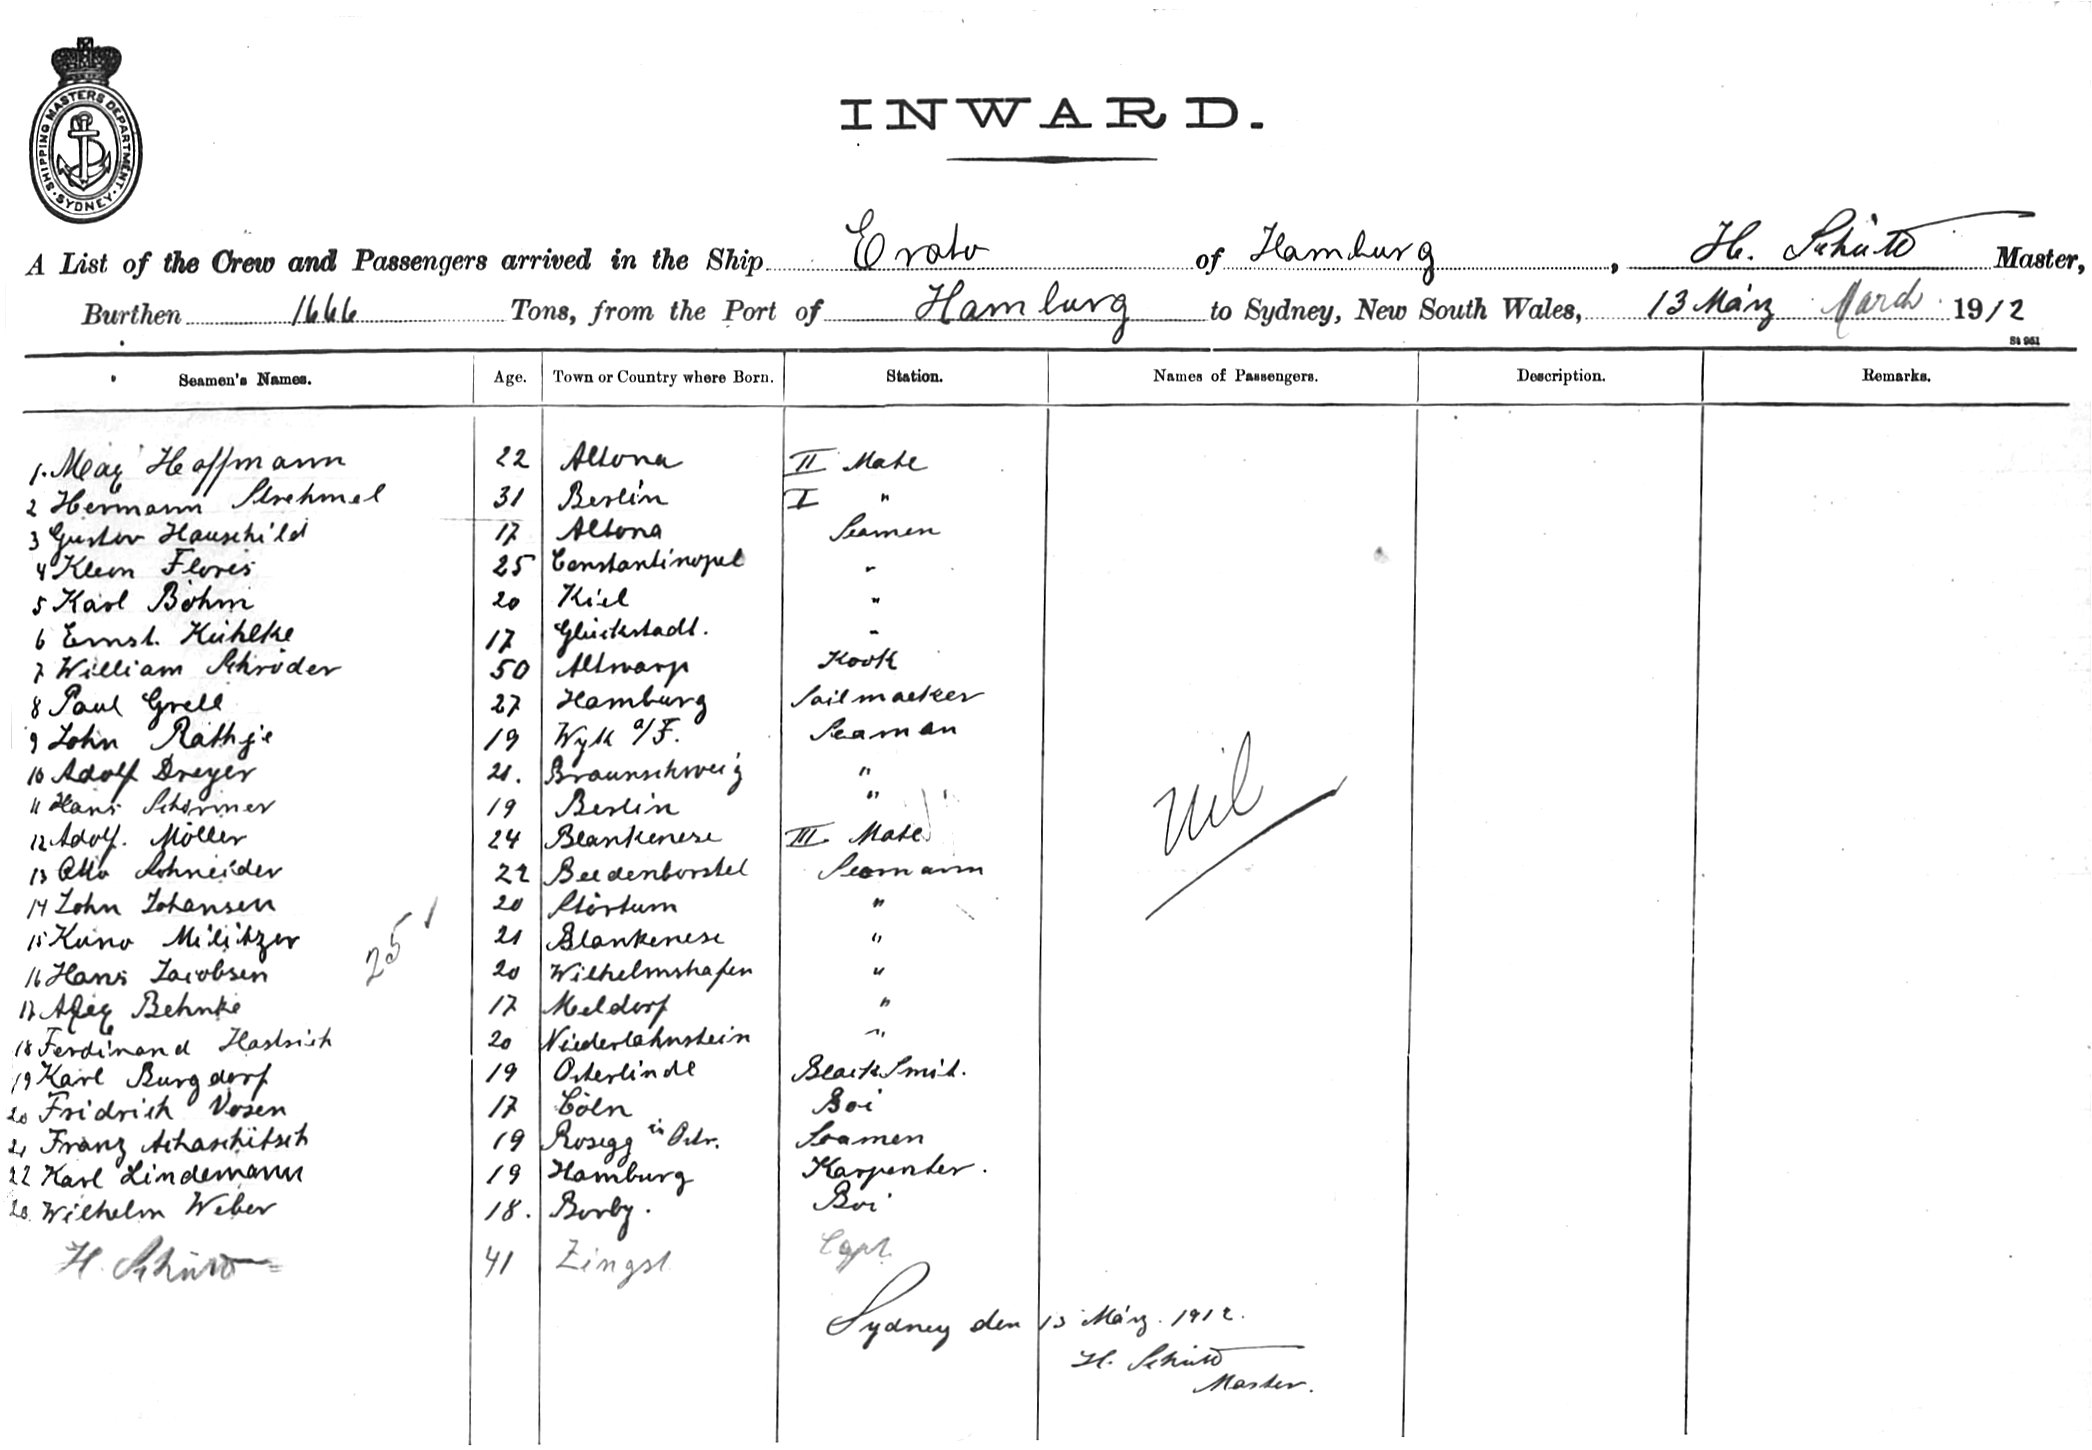 SHIPPING MASTERS DEPARTMENT · SYDNEY ·
INWARD.
A List of the Crew and Passengers arrived in the Ship Erato of Hamburg, H. Schütt Master,
Burthen 1666 Tons, from the Port of Hamburg to Sydney, New South Wales, 13 März March 1912
St 961
Seamen's Names. Age. Town or Country where Born. Station. Names of Passengers. Description. Remarks.
1. Max Hoffmann 22 Altona II Mate
2 Hermann Strehmel 31 Berlin I "
3 Gustav Hauschild 17 Altona Seamen
4 Kleon Floris 25 Constantinopel "
5 Karl Böhm 20 Kiel "
6 Ernst. Kühlke 17 Glückstadt. "
7 William Schröder 50 Altwarp Kook
8 Paul Grell 27 Hamburg Sailmacker
9 John Rathje 19 Wyk a/F. Seaman
10 Adolf Dreyer 21. Braunschweig "
11 Hans Schirmer 19 Berlin "
12 Adolf. Möller 24 Blankenese III. Mate
13 Otto Schneider 22 Beedenborstel Seamann
14 John Johansen 20 Störtum "
15 Kuno Militzer 21 Blankenese "
16 Hans Jacobsen 20 Wilhelmshafen "
17 Behnke 17 Meldorf "
18 Ferdinand Hastrich 20 Niederlahnstein "
19 Karl Burgdorf 19 Osterlinde BlackSmit.
20 Fridrich Vosen 17 Cöln Boi
21 Franz Achaschitsch 19 Rosegg in Östr. Seamen
22 Karl Lindemann 19 Hamburg Karpenter.
23. Wilhelm Weber 18. Borby. Boi
H. Schütt 41 Zingst Capt.
25
Nil
Sydney den 13 März. 1912.
H. Schütt
Master.